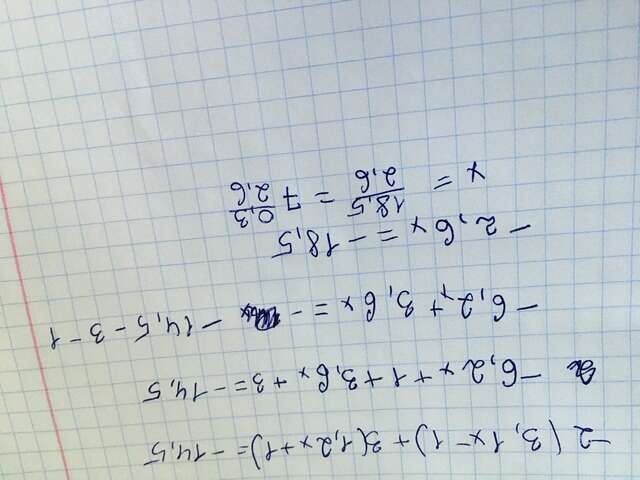 -2(3,1x-1)+3(1,2x+1)=-14,5
-6,2x+1+3,6x+3=-14,5
-6,2x+3,6x=- -14,5-3-1
-2,6x=-18,5
x = 18,5/2,6 = 7 0,3/2,6